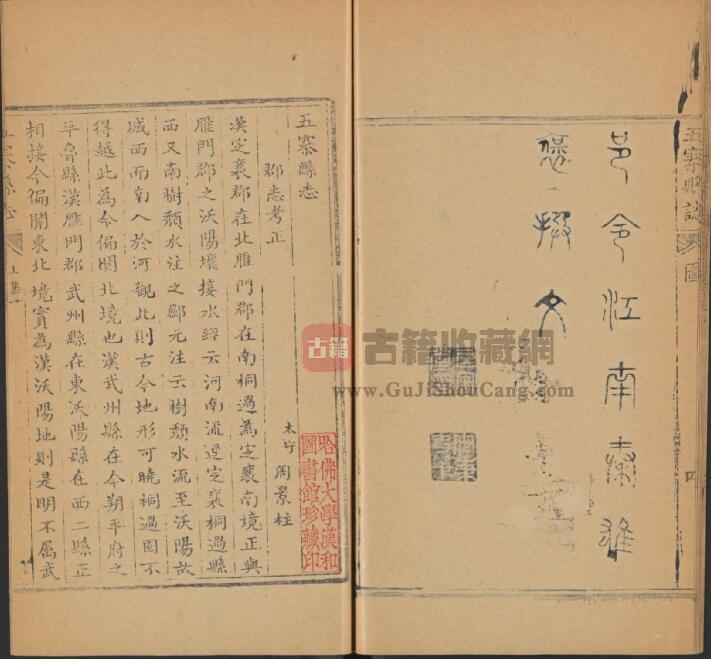 五寨縣誌 圖
邑令江南秦雄
褒 文
五寨縣志
郡志考正
太守 周景柱
漢定襄郡在北雁門郡在南桐過為定襄南境正與
雁門郡之沃陽壤接水經云河南流逕定襄桐過縣
西又南樹頹水注之酈元注云樹頹水流至沃陽故
城西而南入於河觀此則古今地形可曉桐過固不
得越此為今偏關北境也漢武州縣在今朔平府之
平魯縣漢雁門郡武州縣在東沃陽縣在西二縣正
相接今偏關東北境實為漢沃陽地則是明不屬武
五寨縣志
哈佛大學漢和
圖書館珍藏印
古籍 古籍收藏網
www.GuJiShouCang.com